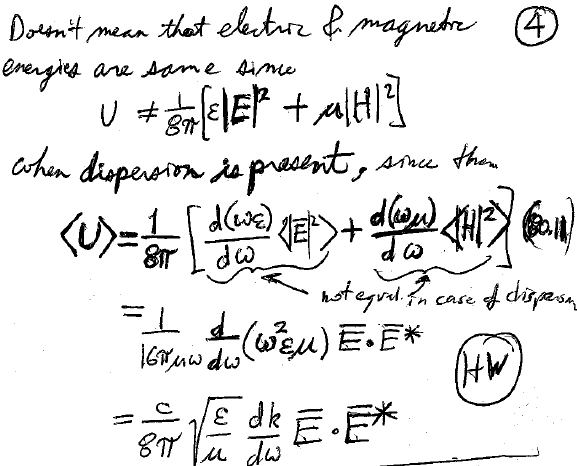 Doesn't mean that electric & magnetic ④
energies are same since
U ≠ 1/8π [ε|E|² + μ|H|²]
when dispersion is present, since then
⟨U⟩ = 1/8π [ d(ωε)/dω ⟨|E|²⟩ + d(ωμ)/dω ⟨|H|²⟩ ] (80.11)
not equal in case of dispersion
= 1/16πμω d/dω (ω²εμ) E̅·E̅*
HW
= c/8π √(ε/μ) dk/dω E̅·E̅*